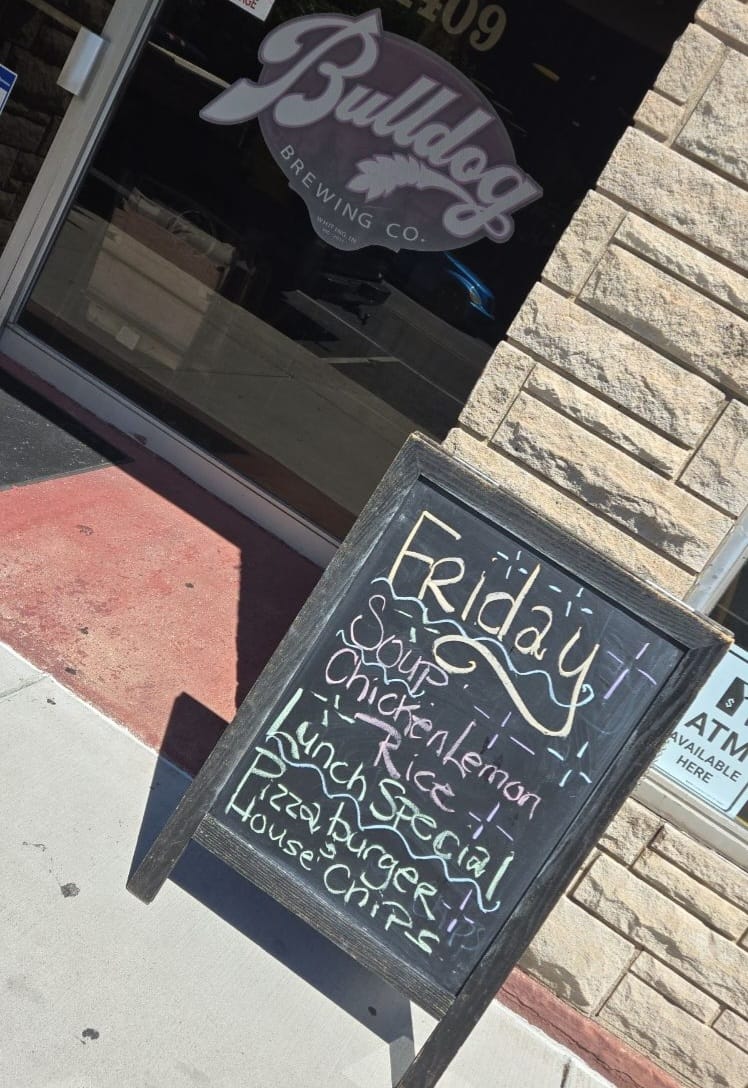 1409
Bulldog
BREWING CO.
WHITING, IN
Friday
Soup
Chicken Lemon
Rice
Lunch Special
Pizza burger
House Chips
ATM
AVAILABLE
HERE